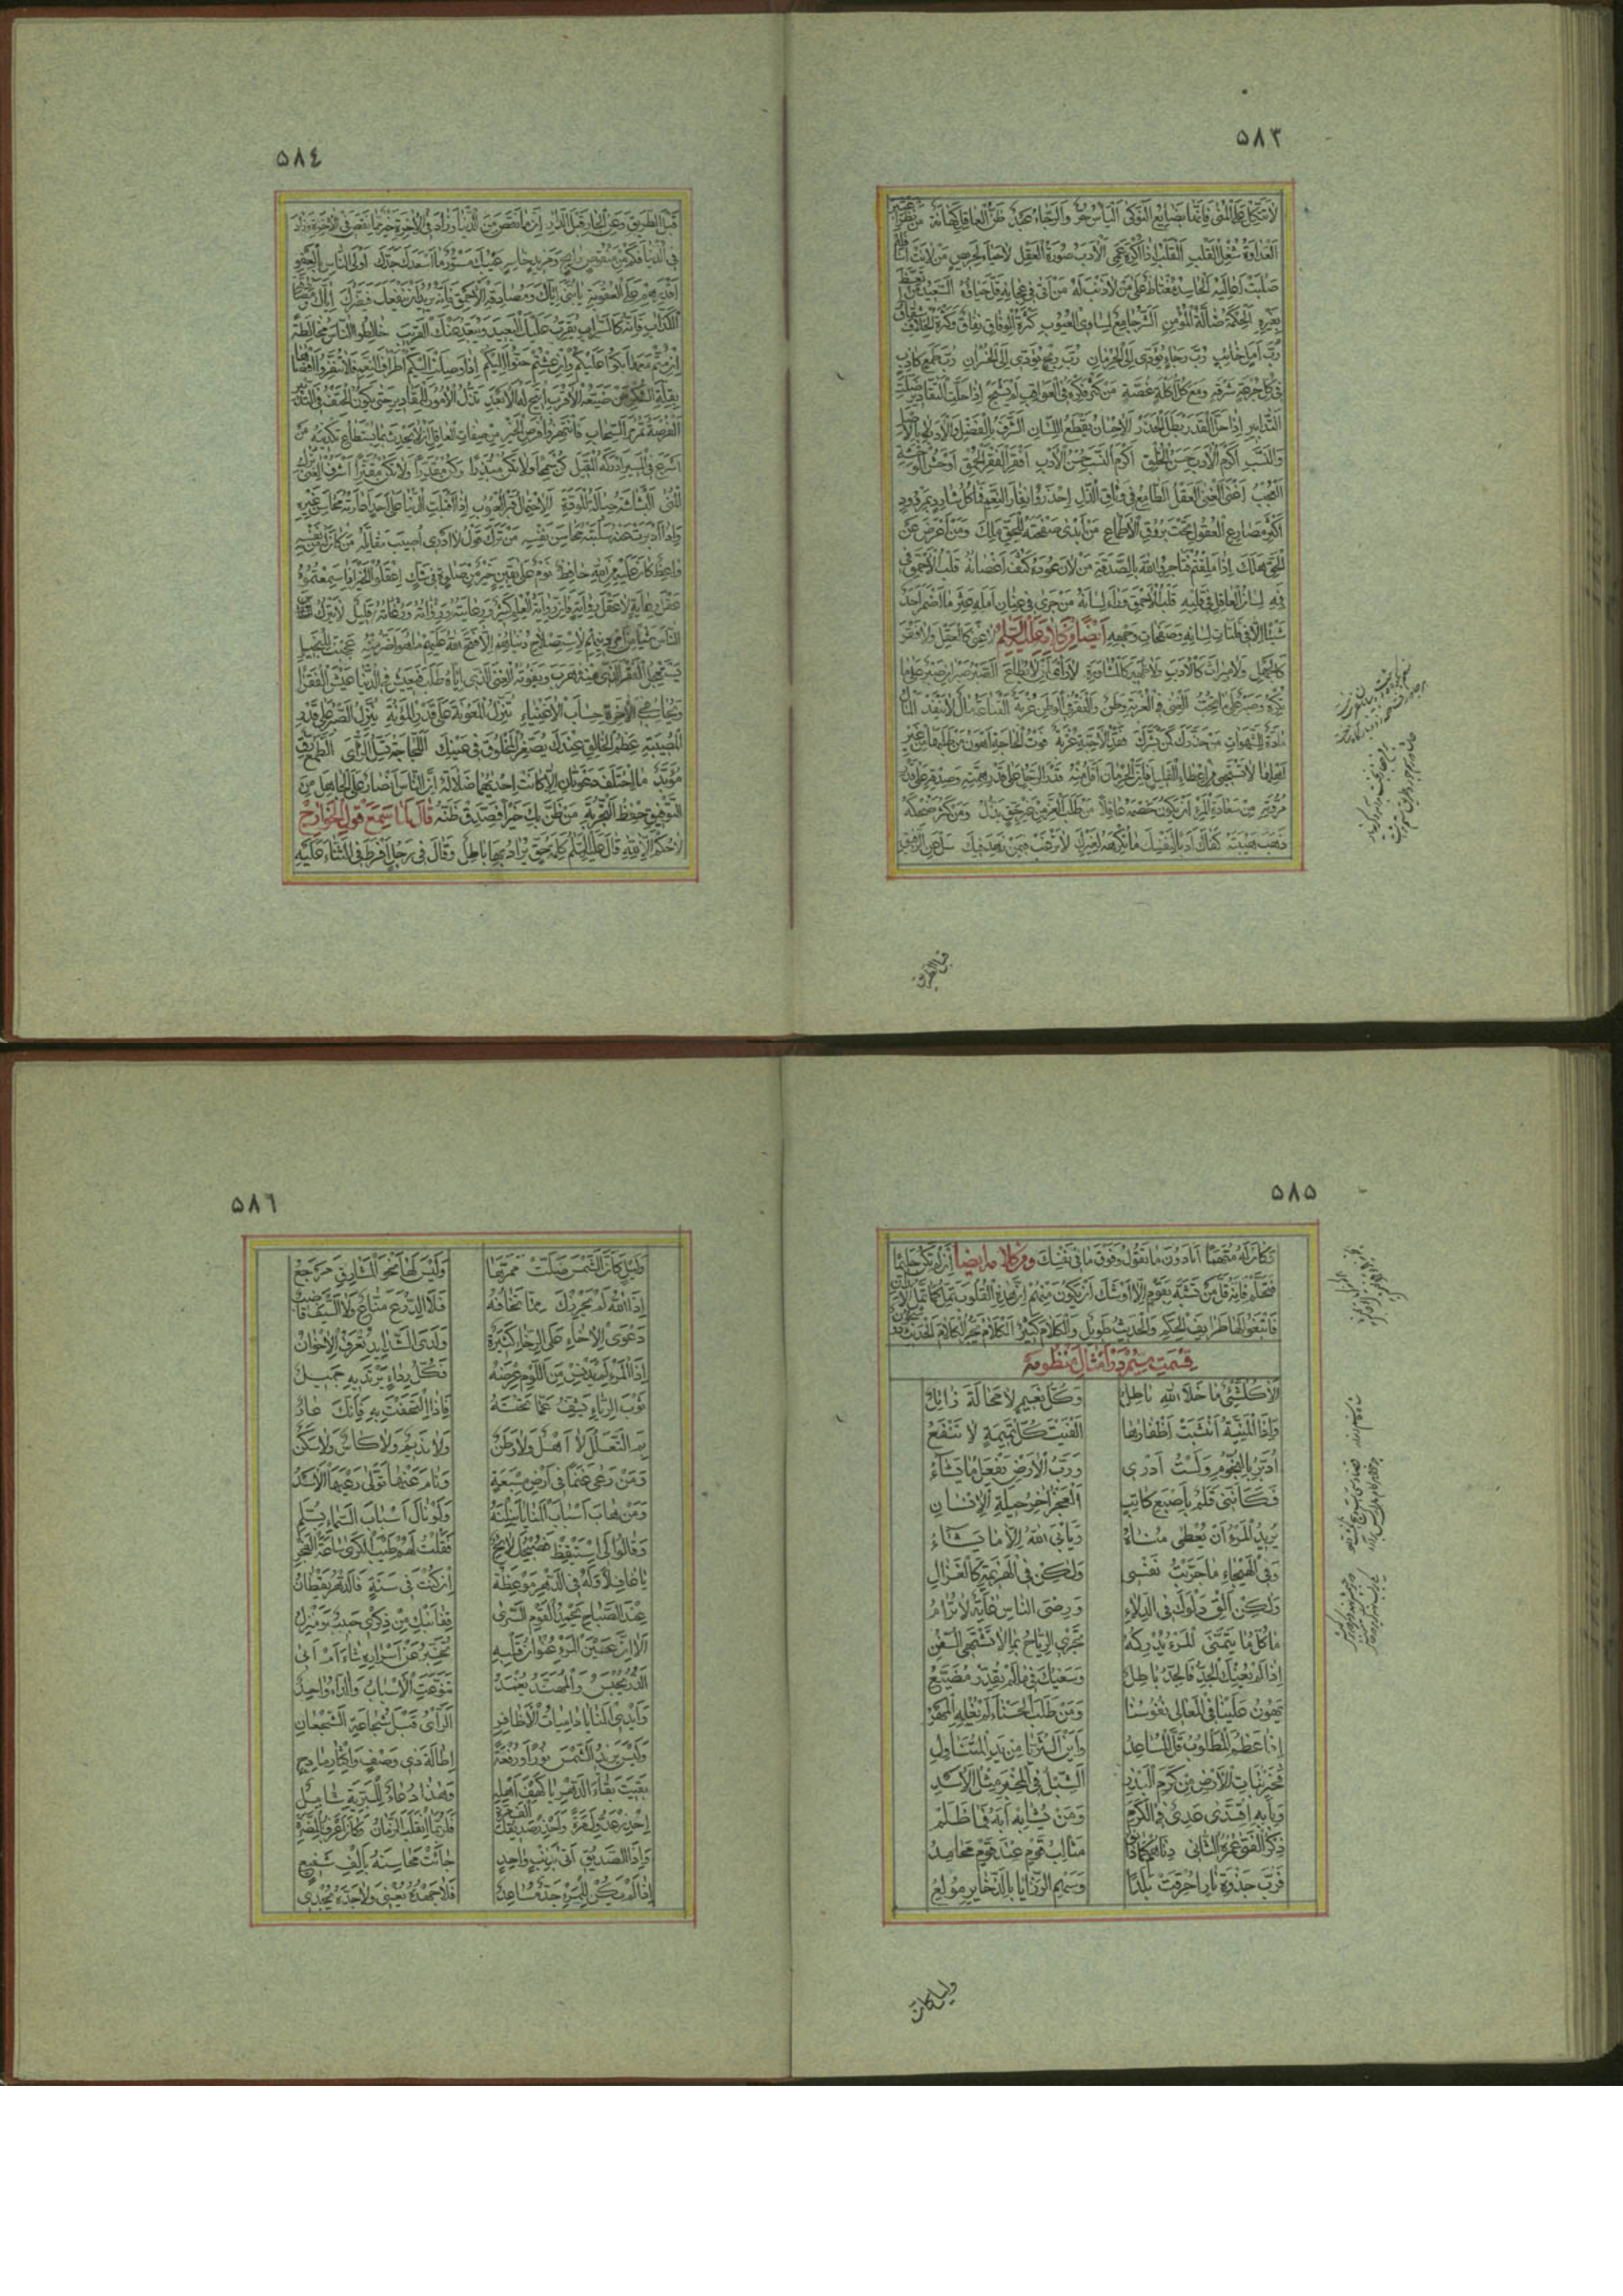 ٥٨٣
لاتتکل علی المنی فانها بضایع النوکی الیأس حر والرجاء عبد ظن العاقل کهانة من نظر اعتبر
العداوة شغل القلب القلب اذا اکره عمی الادب صورة العقل لاحیاء لحریص من لانت اسافله
صلبت اعالیه الحاسد مغتاظ علی من لاذنب له من اتی فی عجانه قل حیاؤه السعید من وعظ
بغیره الحکمة ضالة المؤمن الشر جامع لمساوی العیوب کثرة الوفاق نفاق وکثرة الخلاف شقاق
رب امل خائب رب رجاء یؤدی الی الحرمان رب ربح یؤدی الی الخسران رب طمع کاذب
فی کل جرعة شرقة ومع کل اکلة غصة من کثر فکره فی العواقب لم یشجع اذا حلت المقادیر ضلت
التدابیر اذا حل القدر بطل الحذر الاحسان یقطع اللسان الشرف بالفضل والادب لا بالاصل
والنسب اکرم الادب حسن الخلق اکرم النسب حسن الادب افقر الفقر الحمق اوحش الوحشة
العجب اغنی الغنی العقل الطامع فی وثاق الذل احذروا نفار النعم فما کل شارد بمردود
اکثر مصارع العقول تحت بروق الاطماع من ابدی صفحته للحق هلک ومن اعرض عن
الحق هلک اذا املقتم فتاجروا الله بالصدقة من لان عوده کثف اغصانه قلب الاحمق فی
فیه لسان العاقل فی قلبه قلب الاحمق وراء لسانه من جری فی عنان امله عثر ما اضمر احد
شیئا الا فی فلتات لسانه وصفحات وجهه ایضا من کلامه علیه السلم لا غنی کالعقل ولا فقر
کالجهل ولا میراث کالادب ولا ظهیر کالمشاورة لا رأی لمن لا یطاع الصبر صبران صبر علی ما
تکره وصبر علی ما تحب الغنی فی الغربة وطن والفقر فی الوطن غربة القناعة مال لا ینفد المال
مادة الشهوات من حذرک کمن بشرک فقد الاحبة غربة فوت الحاجة اهون من طلبها من غیر
اهلها لا تستحی من اعطاء القلیل فان الحرمان اقل منه قدر الرجل علی قدر همته وصدقه علی قدر
مروته من سعادة المرء ان یکون خصمه عاقلا من طلب العز من غیر حق یذل ومن کثر ضحکه
ذهب هیبته کفاک ادبا لنفسک ما تکرهه لغیرک لا ترغب فیمن زهد فیک سل عن الرفیق
قبل الطریق
٥٨٤
قبل الطریق وعن الجار قبل الدار ان ما نقص من الدنیا وزاد فی الاخرة خیر مما ینقص فی الاخرة وزاد
فی الدنیا فکم من منقوص رابح ومزید خاسر عیبک مستور ما اسعدک جدک اولی الناس بالعفو
اقدرهم علی العقوبة یا بنی ایاک ومصادقة الاحمق فانه یرید ان ینفعک فیضرک
الکذاب فانه کالسراب یقرب علیک البعید ویبعد عنک القریب خالطوا الناس مخالطة
ان متم معها بکوا علیکم وان عشتم حنوا الیکم اذا وصلت الیکم اطراف النعم فلا تنفروا اقصاها
بقلة الشکر من ضیعه الاقرب اتیح له الابعد تذل الامور للمقادیر حتی یکون الحتف فی التدبیر
الفرصة تمر مر السحاب فانتهزوا فرص الخیر من صفات العاقل ان لا یحدث بما یستطاع تکذیبه من
اسرع فی المسیر ادرکه المقیل کن سمحا ولا تکن مبذرا وکن مقدرا ولا تکن مقترا اشرف الغنی ترک
المنی البشاشة حبالة المودة الاحتمال قبر العیوب اذا اقبلت الدنیا علی احد اعارته محاسن غیره
واذا ادبرت عنه سلبته محاسن نفسه من ترک قول لا ادری اصیبت مقاتله من کان له من نفسه
واعظ کان علیه من الله حافظ نوم علی یقین خیر من صلوة فی شک اعقلوا الخبر اذا سمعتموه
عقل رعایة لا عقل روایة فان رواة العلم کثیر ورعاته قلیل لا یترک
الناس شیئا من امر دینهم لاستصلاح دنیاهم الا فتح الله علیهم ما هو اضر منه عجبت للبخیل
یستعجل الفقر الذی منه هرب ویفوته الغنی الذی ایاه طلب فیعیش فی الدنیا عیش الفقراء
ویحاسب فی الاخرة حساب الاغنیاء تنزل المعونة علی قدر المؤنة ینزل الصبر علی قدر
المصیبة عظم الخالق عندک یصغر المخلوق فی عینک اللجاجة تسل الرأی الطمع رق
مؤبد ما اختلف دعوتان الا کانت احدیهما ضلالة ان الناس انصار علی الجاهل من
التوفیق حفظ التجربة من ظن بک خیرا فصدق ظنه قال لما سمع قول الخوارج
لا حکم الا لله قال علیه السلم کلمة حق یراد بها باطل وقال فی رجل افرط فی الثناء علیه
٥٨٥
وکان له متهما انا دون ما تقول وفوق ما فی نفسک ومن کلامه ایضا ان لم تکن حلیما
فتحلم فانه قل من تشبه بقوم الا اوشک ان یکون منهم ان هذه القلوب تمل کما تمل الابدان
فابتغوا لها طرایف الحکم والحدیث طویل والکلام کثیر الکلام یجر الکلام الحدیث ذو شجون
قسمت سیم در امثال منظومه
الا کل شیئ ما خلا الله باطل وکل نعیم لا محالة زائل
واذا المنیة انشبت اظفارها الفیت کل تمیمة لا تنفع
ادبر بالنجوم ولست ادری ورب الارض یفعل ما یشاء
فکاننی قلم باصبع کاتب العجز اخر حیلة الانسان
یرید المرء ان یعطی مناه ویأبی الله الا ما یشاء
وفی الهیجاء ما جربت نفسی ولکن فی الهزیمة کالغزال
ولکن الق دلوک فی الدلاء ورضی الناس غایة لا ترام
ما کل ما یتمنی المرء یدرکه تجری الریاح بما لا تشتهی السفن
اذا لم یعنک الجد فالجد باطل وسعیک فی ما لم یقدر مضیع
تهون علینا فی المعالی نفوسنا ومن طلب الحسناء لم یغله المهر
اذا عظم المطلوب قل المساعد واین الثریا من ید المتناول
فخیر نبات الارض من کرم البذر الشبل فی المخبر مثل الاسد
وبابه اقتدی عدی فی الکرم ومن یشابه ابه فما ظلم
ذکر الفتی عمره الثانی مثالب قوم عند قوم محامد
فرب جذوة نار احرقت بلدا وسهم الرزایا بالذخایر مولع
ولیل کان
٥٨٦
ولیل کان الشمس ضلت ممرها ولیس لها نحو المشارق مرجع
اذا الله لم یحرزک مما تخافه فلا الدرع مناع ولا السیف قاضب
دعوی الاخاء علی الرخاء کثیرة ولدی الشدائد تعرف الاخوان
اذا المرء لم یدنس من اللؤم عرضه فکل رداء یرتدیه جمیل
ثوب الریاء یشف عما تحته فاذا التحفت به فانک عار
بم التعلل لا اهل ولا وطن ولا ندیم ولا کاس ولا سکن
ومن رعی غنما فی ارض مسبعة ونام عنها تولی رعیها الاسد
ومن هاب اسباب المنایا ینلنه ولو نال اسباب السماء بسلم
وقالوا لی استیقظ فصبحک لائح فقلت لهم طیب الکری ساعة الفجر
یا غافلا وله فی الدهر موعظة ان کنت فی سنة فالدهر یقظان
عند الصباح یحمد القوم السری قفا نبک من ذکری حبیب ومنزل
الا ان عین المرء عنوان قلبه تخبر عن اسراره شاء ام ابی
تنوعت الاسباب والداء واحد
وایدی المنایا دامیات الاظافر الرأی قبل شجاعة الشجعان
ولیس یزید الشمس نورا ورفعة اطالة ذی وصف واکثار مادح
بقیت بقاء الدهر یا کهف اهله وهذا دعاء للبریة شامل
احذر عدوک مرة واحذر صدیقک الف مرة فلربما انقلب الزمان فکان اعرف بالمضرة
واذا الصدیق اتی بذنب واحد جائت محاسنه بالف شفیع
اذا لم یکن للمرء جد مساعد فلا جهده یغنی ولا جده یجدی